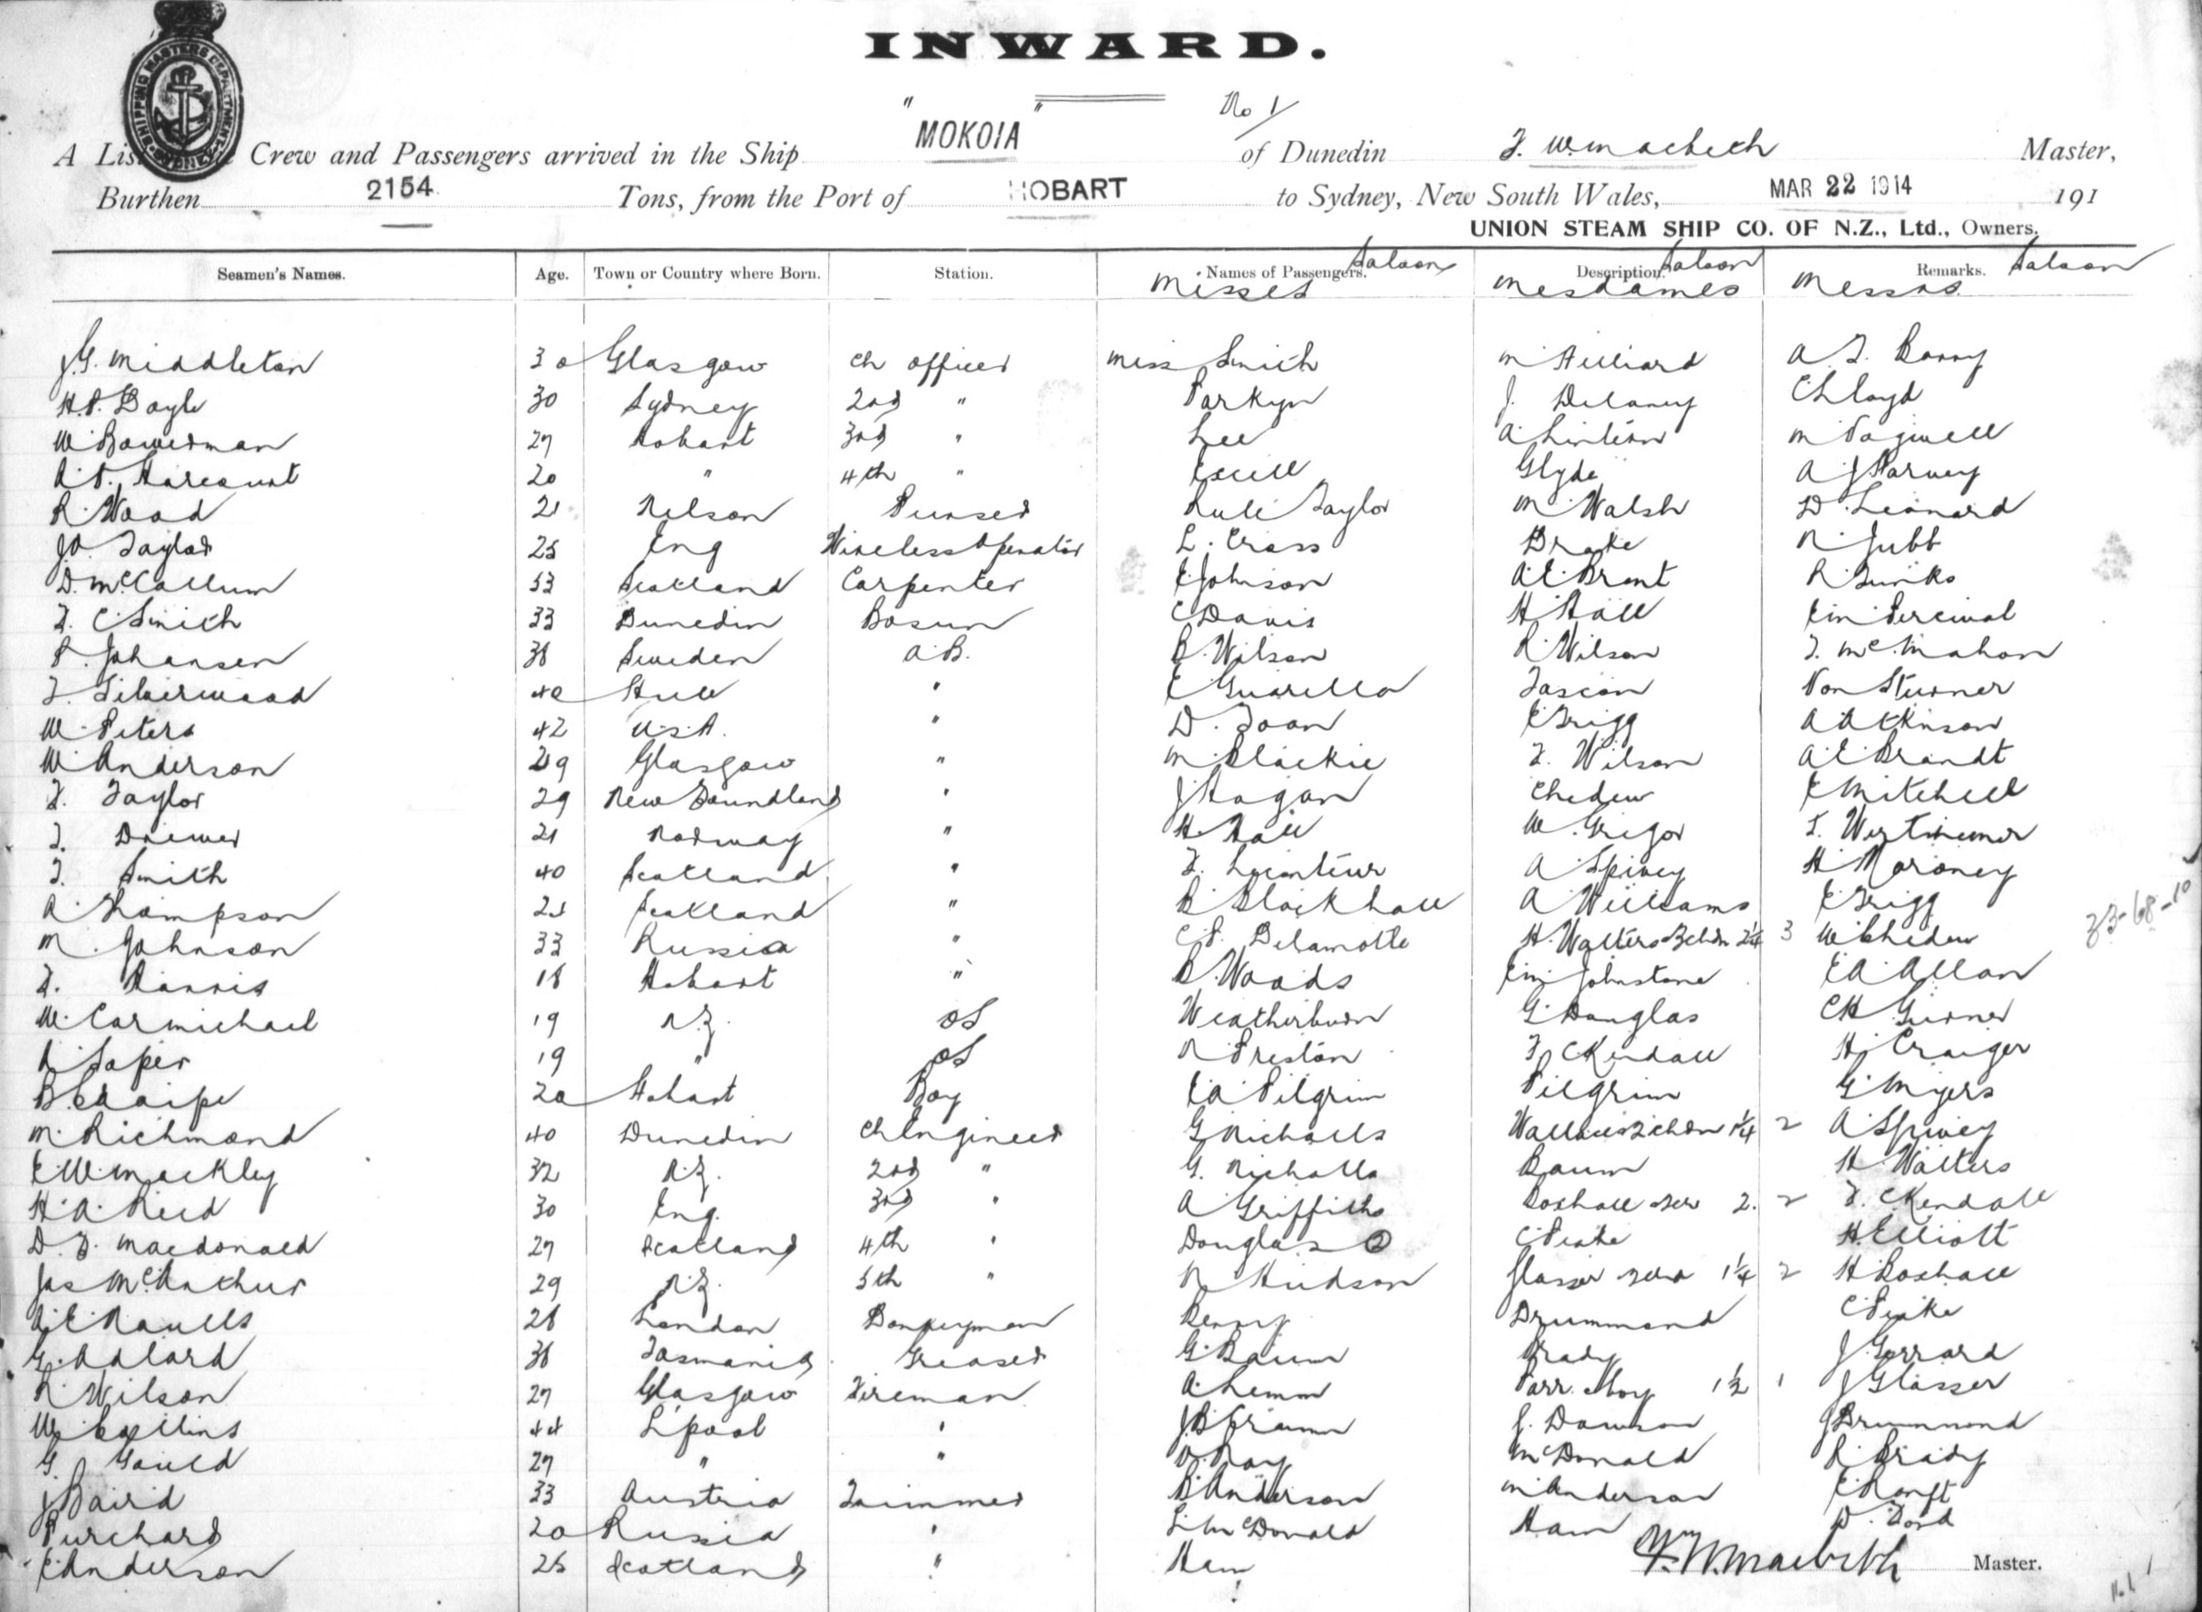 INWARD.
" MOKOIA " No 1
A List Crew and Passengers arrived in the Ship MOKOIA of Dunedin F. W. Macbeth Master,
Burthen 2154 Tons, from the Port of HOBART to Sydney, New South Wales, MAR 22 1914 191
UNION STEAM SHIP CO. OF N.Z., Ltd., Owners.
Seamen's Names. Age. Town or Country where Born. Station. Names of Passengers. Saloon Description. Saloon Remarks. Saloon
Misses Mesdames Messrs
J.G. Middleton 30 Glasgow Ch Officer Miss Smith M Hilliard A. F. Barry
H.P. Boyle 30 Sydney 2nd " Parkyn J. Delaney C Lloyd
W. Bowerman 27 Hobart 3rd " Lee A. Linton M
Harcourt 20 " 4th " Excell Glyde A J Harvey
R. Wood 21 Nelson Purser Rule Taylor M. Walsh D. Leonard
Taylor 25 Eng Wireless Operator L. Cross Drake R. Jubb
D. McCallum 53 Scotland Carpenter E Johnson A.E. Brant R.
F. C Smith 33 Dunedin Bosun C Davis H. Hall E M Percival
P. Johansen 38 Sweden A.B. B. Wilson R Wilson F. McMahon
F Silverwood 40 Hull " E Tascon Von Sturmer
W. Peters 42 U.S.A. " D. E Trigg A Atkinson
W. Anderson 29 Glasgow " M. Blackie F. Wilson A.E. Brandt
F. Taylor 29 New Foundland " J Hagan Chedew E Mitchell
F. 21 Norway " H. Hall W. Grigor
F. Smith 40 Scotland " F. A Spivey H Moroney
A Thompson 25 Scotland " B Blackhall A Williams E Trigg
M. Johnson 33 Russia " C. P. Delamotte H. Walters 2 chdn 2¼ 3 W Chedew
F. Harris 18 Hobart " B. Woods E M Johnstone E A Allan
W. Carmichael 19 N.Z. OS Weatherburn G Douglas C H Turner
Soper 19 " OS R Preston F C Kendall H.
20 Hobart Boy E A Pilgrim Pilgrim G. Myers
M. Richmond 40 Dunedin Ch Engineer G Nicholls 2 chdn 1¼ 2 A Spivey
E W. Mackley 32 N.Z. 2nd " G. Nicholls Baum H. Walters
H. A. Reed 30 Eng. 3rd " A Griffiths Boxhall 2. 2 F. C Kendall
D. F. Macdonald 27 Scotland 4th " Douglas 2 C Peake H. Elliott
Jas McArthur 29 N.Z. 5th " R Hudson Glasser 1¼ 2 H Boxhall
28 London Donkeyman Drummond C Peake
G. Adlard 38 Tasmania Greaser G. Baum Brady J Gerrard
R. Wilson 27 Glasgow Fireman A. Lemm Parr & boy 1½ 1 J Glasser
W. Collins 44 L'pool " J. Dawson J Drummond
G. Gould 27 " " McDonald R. Brady
J Baird 33 Austria Trimmer B. Anderson M Anderson
Purchard 20 Russia " L M c Donald Ham D. Ford
E Anderson 25 Scotland " Ham F. W. Macbeth Master.